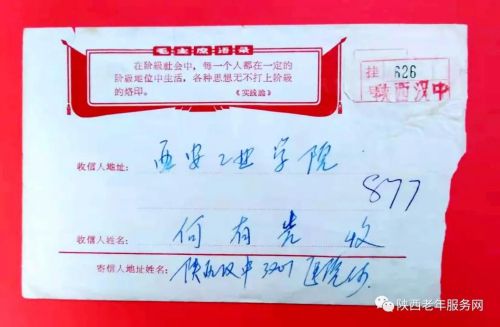 毛主席语录
在阶级社会中，每一个人都在一定的
阶级地位中生活，各种思想无不打上阶级
的烙印。 《实践论》
挂 626
号 陕西汉中
收信人地址： 西安工业学院
877
收信人姓名： 何有贵 收
寄信人地址姓名： 陕西汉中3201医院何
陕西老年服务网